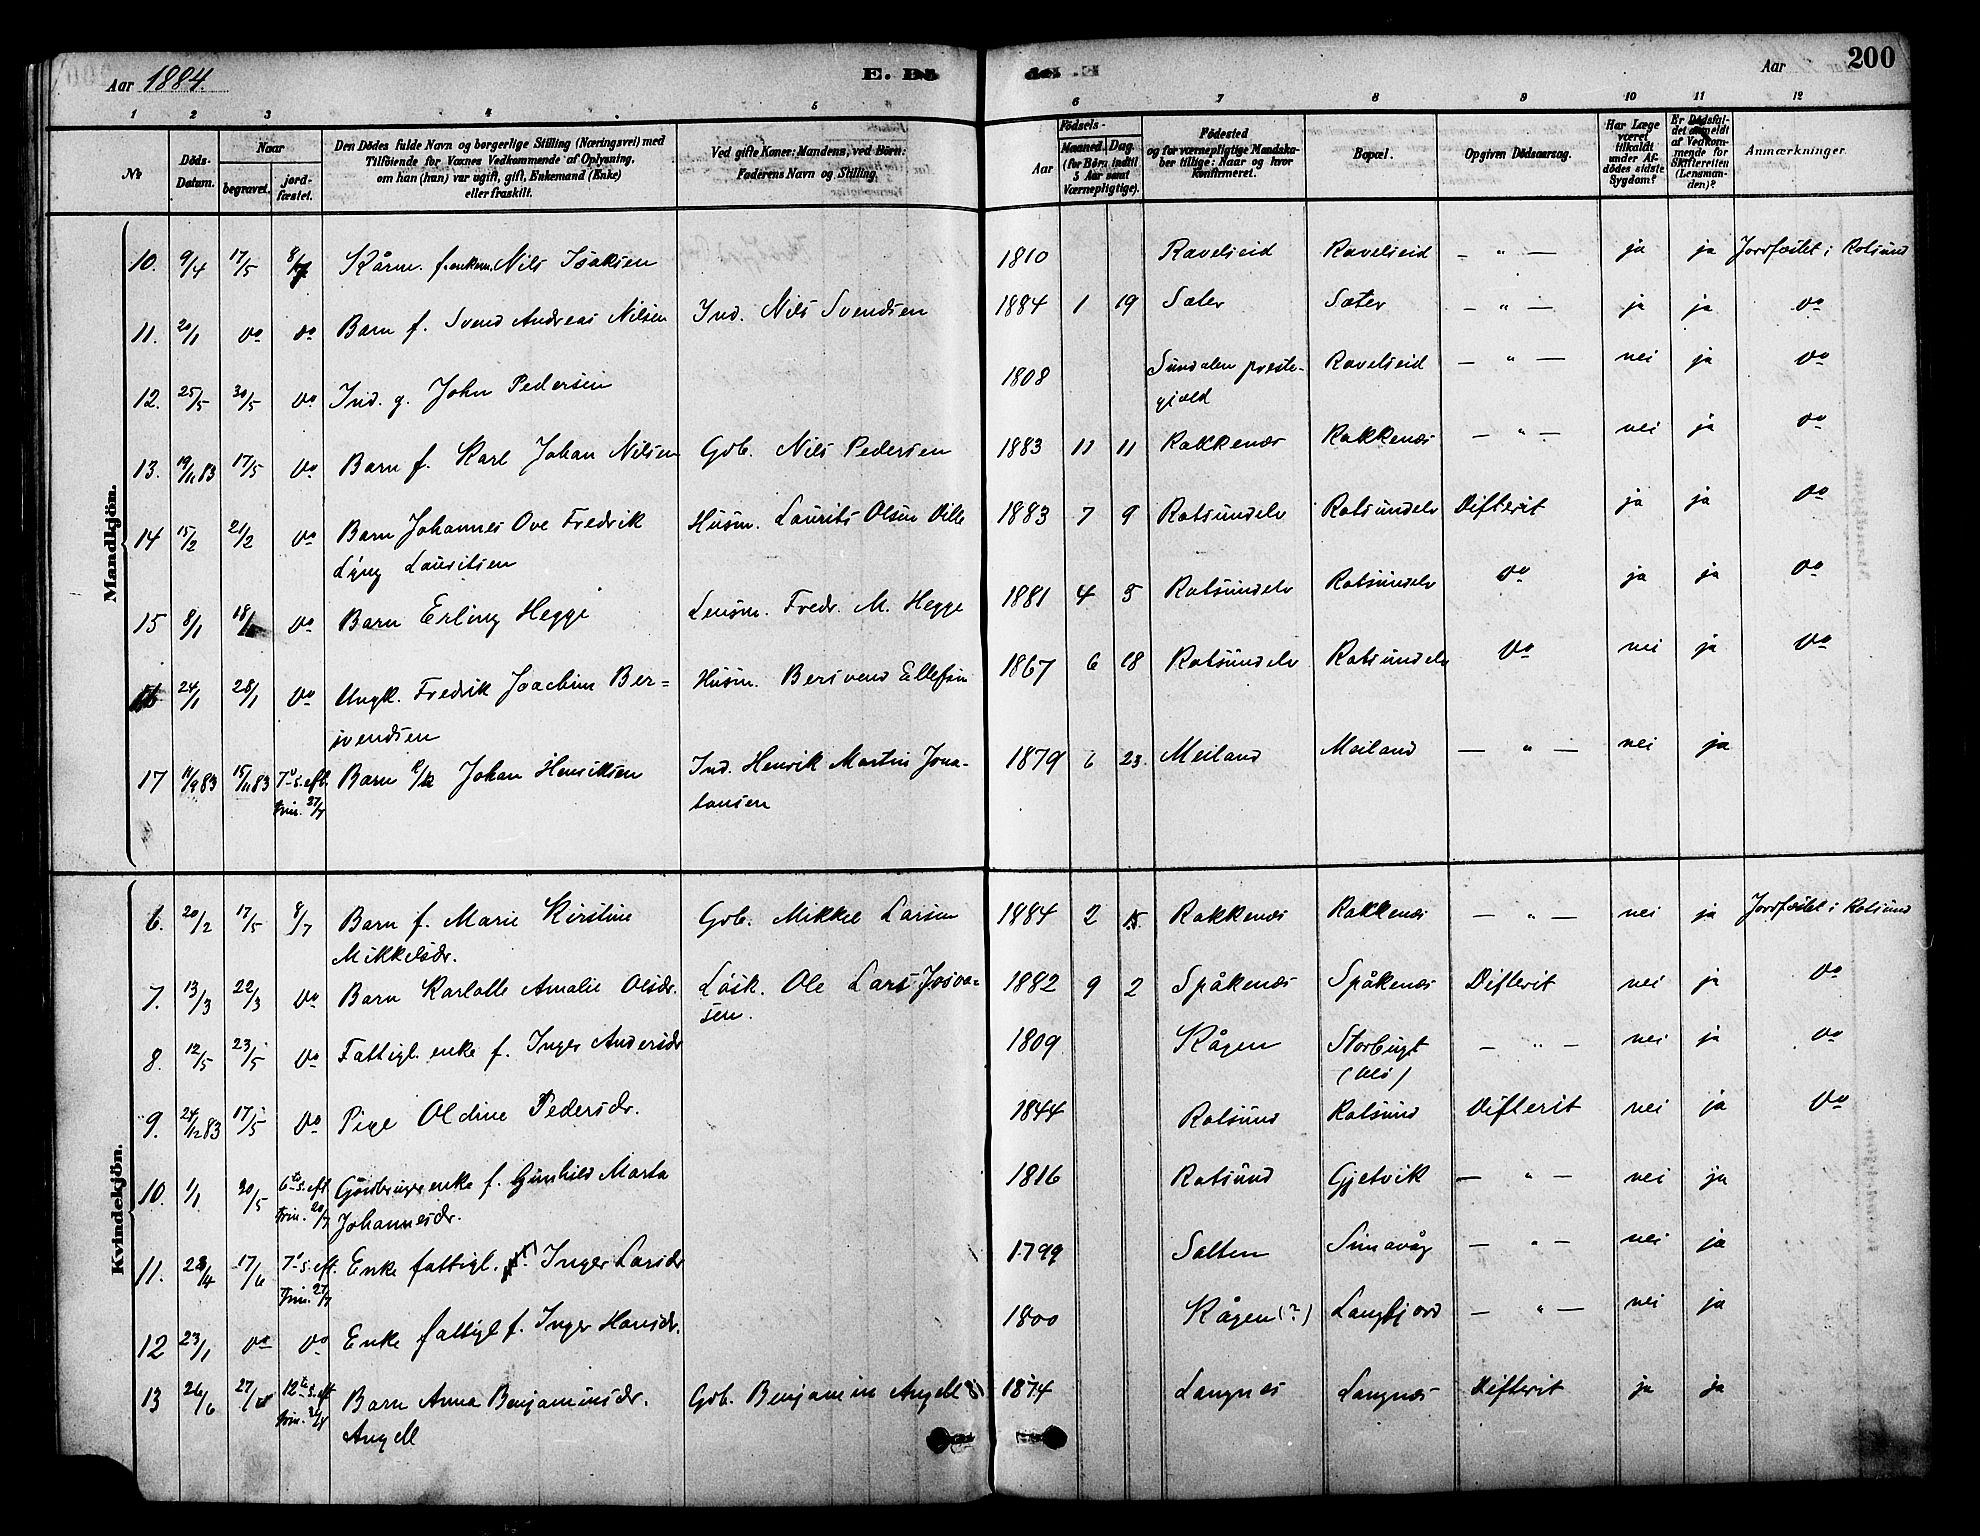 Aar 1884. E. Dö de. Aar 200
1 2 3 4 5 6 7 8 9 10 11 12
No
Döds-Datum.
Naar
begravet.
jord-fæstet.
Den Dödes fulde Navn og borgerlige Stilling (Næringsvei) med
Tilföiende for Voxnes Vedkommende af Oplysning,
om han (hun) var ugift, gift, Enkemand (Enke)
eller fraskilt.
Ved gifte Koner: Mandens, ved Börn:
Faderens Navn og Stilling.
Födsels-
Aar
Maaned. Dag.
(for Börn indtil
5 Aar samt
Værnepligtige).
Födested
og for værnepligtige Mandska-
ber tillige: Naar og hvor
Konfirmeret.
Bopæl.
Opgiven Dödsaarsag.
Har Læge
været
tilkaldt
under Af-
dödes sidste
Sygdom?
Er Dödsfal-
det anmeldt
af Vedkom-
mende for
Skifteretten
(Lensman-
den)?
Anmærkninger.
Mandkjön.
10. 9/4 17/5 8/7 Kårm. f. enkem. Nils Isaksen 1810 Ravelseid Ravelseid — " — ja ja Jordfæstet i Rotsund
11. 20/1 do do Barn f. Svend Andreas Nilsen Ind. Nils Svendsen 1884 1 19 Sæter Sæter — " — ja ja do
12. 25/5 30/5 do Ind. g. John Pedersen 1808 Sundalen preste- Ravelseid — " — nei ja do
gjæld
13. 19/11 83 17/5 do Barn f. Karl Johan Nilsen Gdb. Nils Pedersen 1883 11 11 Rakkenæs Rakkenæs — " — nei ja do
14 15/2 21/2 do Barn Johannes Ove Fredrik Husm. Laurits Olsen 1883 7 9 Rotsundelv Rotsundelv Difterit ja ja do
Lyng Lauritsen
15 8/1 18/1 do Barn Erling Hegge Lensm. Fredr. M. Hegge 1881 4 5 Rotsundelv Rotsundelv do ja ja do
16 24/1 28/1 do Ungk. Fredrik Joachim Ber= Husm. Bersvend Ellefsen 1867 6 18 Rotsundelv Rotsundelv do nei ja do
svendsen
17 11/9 83 15/11 83 7de s. eft. Barn Johan Henriksen Ind. Henrik Martin Jona- 1879 6 23. Meiland Meiland — " — nei ja
Trin. 27/7 tansen
Kvindekjön.
6. 20/2 17/5 8/7 Barn f. Marie Kirstine Gdb. Mikkel Larsen 1884 2 15. Rakkenæs Rakkenæs — " — nei ja Jordfæstet i Rotsund
Mikkelsdr.
7. 13/3 22/3 do Barn Karlotte Amalie Olsdr. Løsk. Ole Lars Josva= 1882 9 2 Spåkenæs Spåkenæs Difterit nei ja do
sen.
8. 12/5 23/5 do Fattigl. enke f. Inger Andersdr 1809 Kågen Storbugt — " — nei ja do
9. 24/12 83 17/5 do Pige Oldine Pedersdr. 1844 Rotsund Rotsund Difterit nei ja do
10. 1/1 20/5 6te s. eft. Gårdbruger enke f. Gunhild Marta 1816 Rotsund Gjetvik — " — nei ja
Trin. 20/7 Johannesdr.
11. 28/4 17/6 7de s. eft. Enke fattigl. Inger Larsdr 1799 Salten Simavåg — " — nei ja
Trin. 27/7
12 23/1 do do Enke fattigl f. Inger Hansdr. 1800 Kågen (?) Langfjord — " — nei ja
13 26/6 12te s. eft Barn Anna Benjaminsdr. Gdb. Benjamin Angell 1874 Langnes Langnæs Difterit ja ja
Trin. Angell